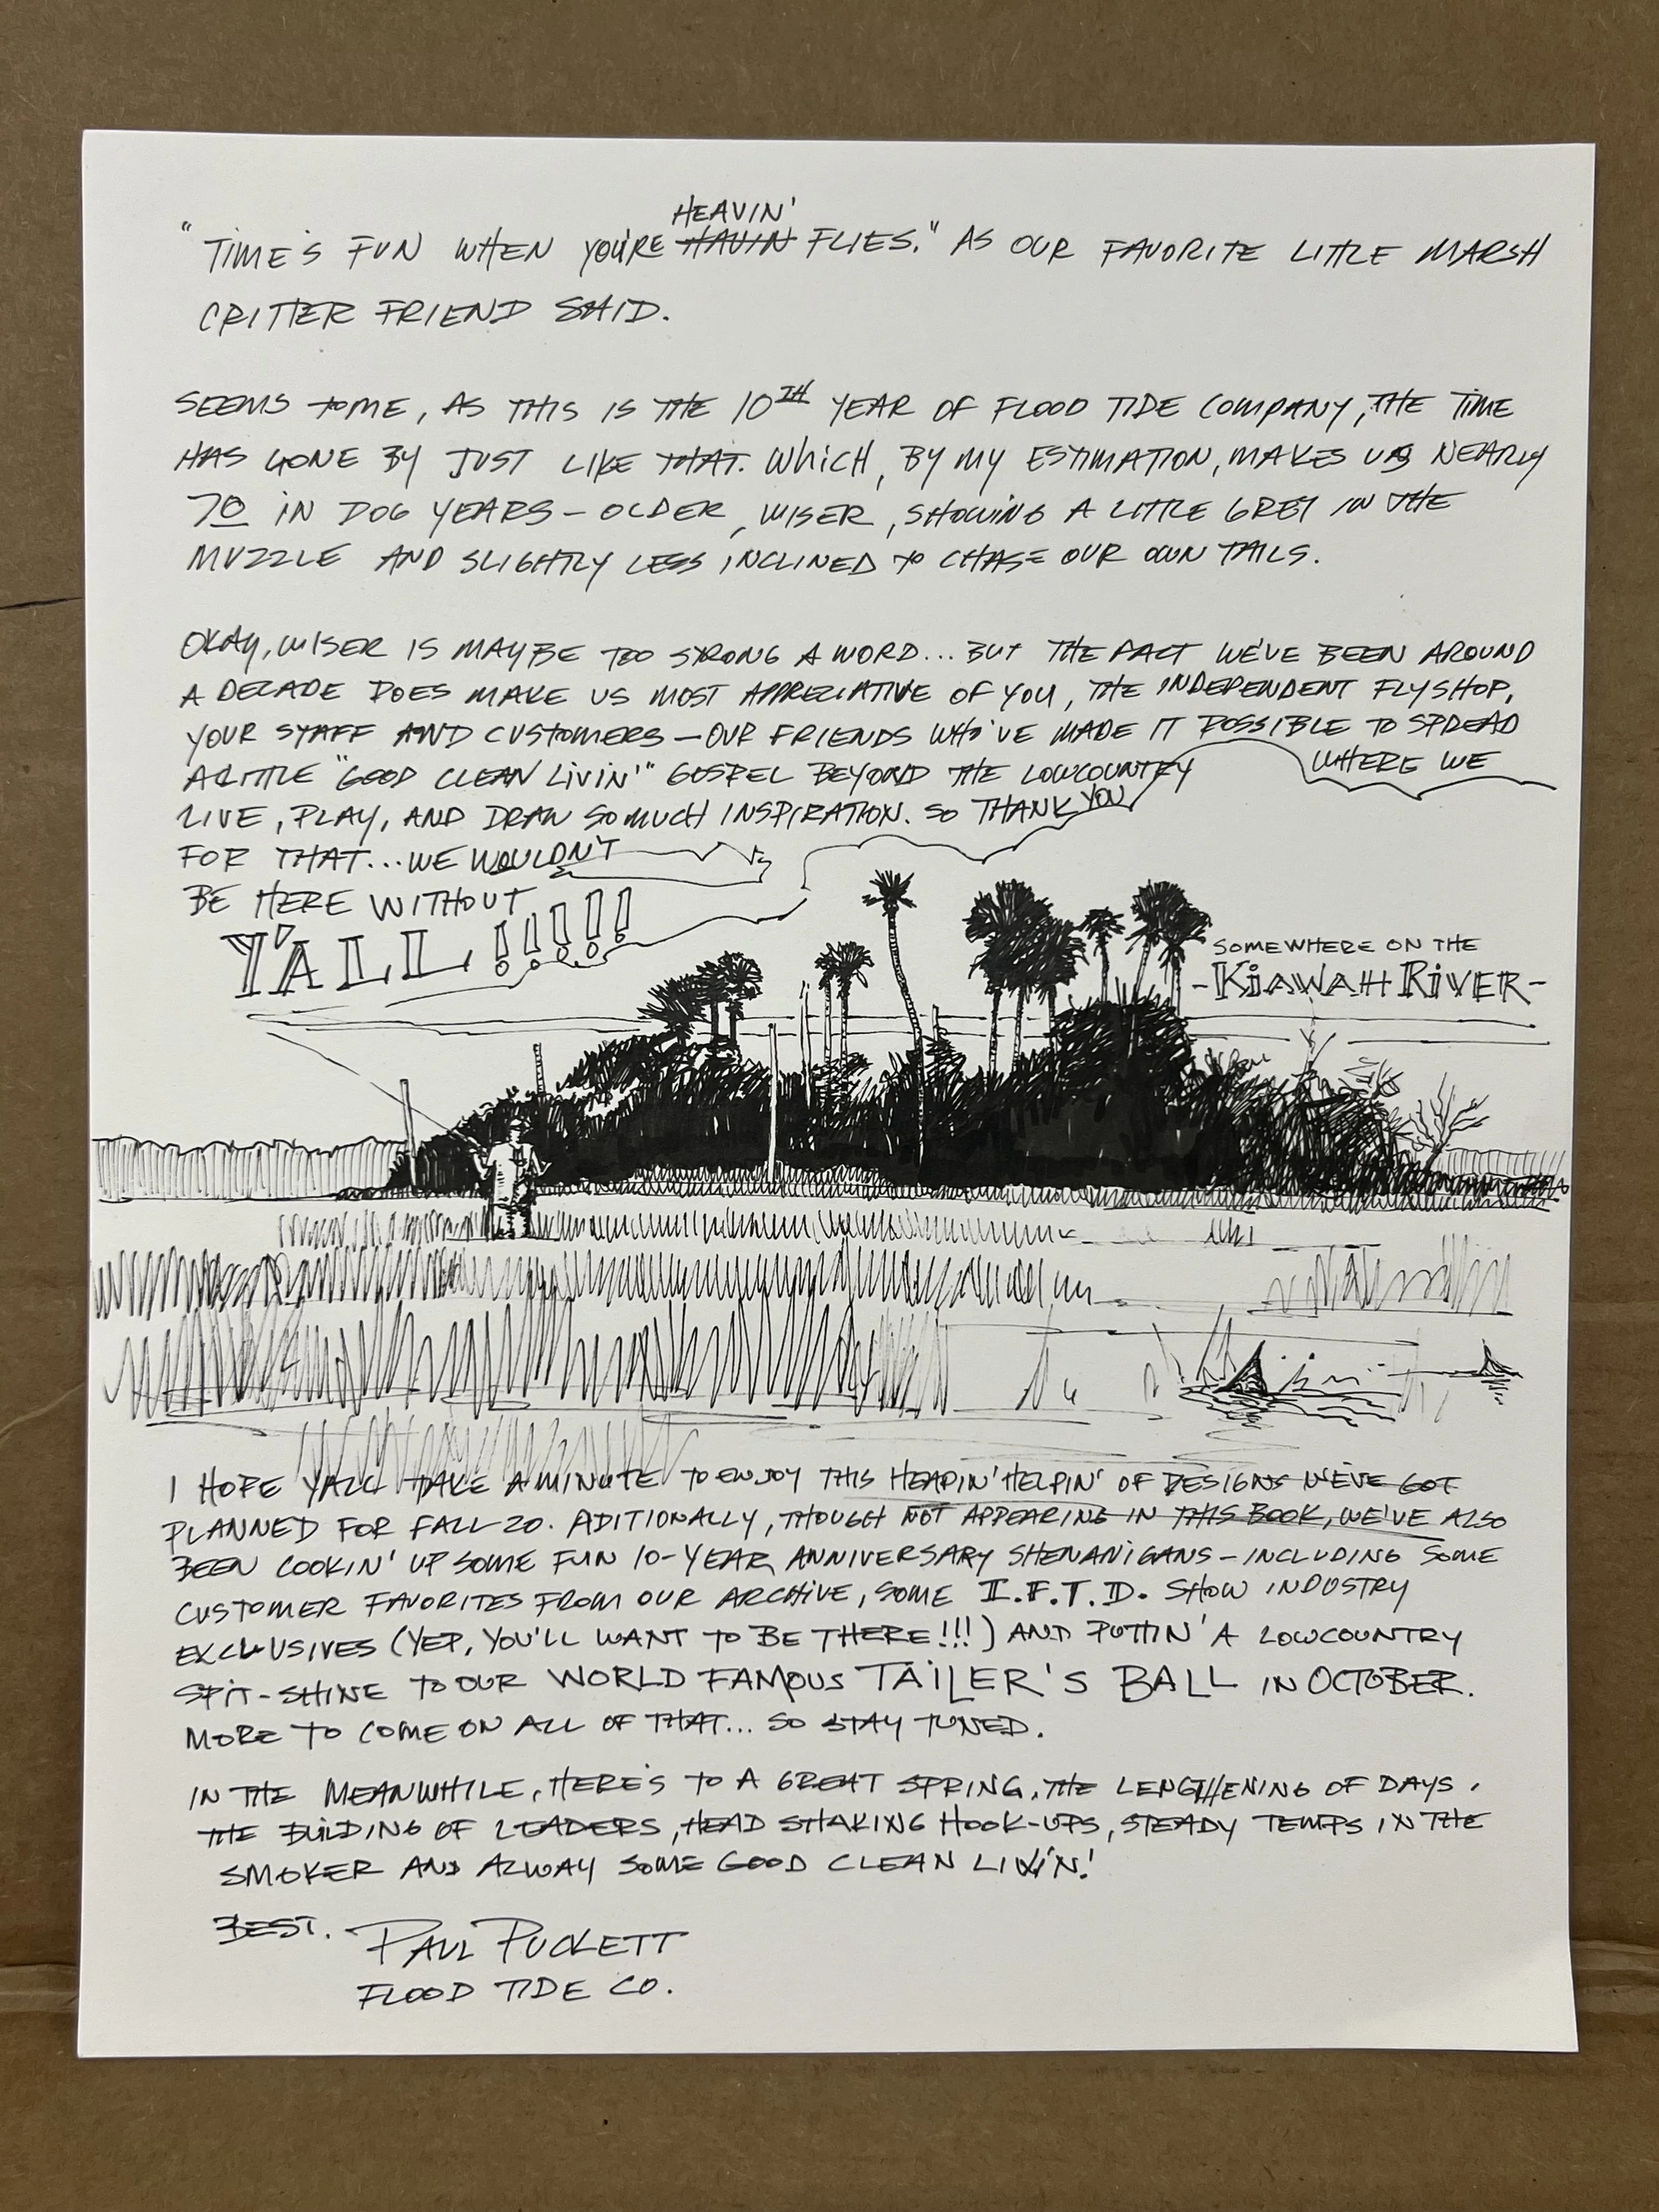 HEAVIN'
"TIME'S FUN WHEN YOU'RE HAVIN FLIES." AS OUR FAVORITE LITTLE MARSH
CRITTER FRIEND SAID.
SEEMS TO ME, AS THIS IS THE 10TH YEAR OF FLOOD TIDE COMPANY, THE TIME
HAS GONE BY JUST LIKE THAT. WHICH, BY MY ESTIMATION, MAKES US NEARLY
70 IN DOG YEARS - OLDER, WISER, SHOWING A LITTLE GREY IN THE
MUZZLE AND SLIGHTLY LESS INCLINED TO CHASE OUR OWN TAILS.
OKAY, WISER IS MAYBE TOO STRONG A WORD... BUT THE FACT WE'VE BEEN AROUND
A DECADE DOES MAKE US MOST APPRECIATIVE OF YOU, THE INDEPENDENT FLYSHOP,
YOUR STAFF AND CUSTOMERS - OUR FRIENDS WHO'VE MADE IT POSSIBLE TO SPREAD
A LITTLE "GOOD CLEAN LIVIN'" GOSPEL BEYOND THE LOWCOUNTRY WHERE WE
LIVE, PLAY, AND DRAW SO MUCH INSPIRATION. SO THANK YOU
FOR THAT... WE WOULDN'T
BE HERE WITHOUT
Y'ALL!!!!!
SOMEWHERE ON THE
-KIAWAH RIVER-
I HOPE YALL TAKE A MINUTE TO ENJOY THIS HEAPIN' HELPIN' OF DESIGNS WE'VE GOT
PLANNED FOR FALL 20. ADITIONALLY, THOUGH NOT APPEARING IN THIS BOOK, WE'VE ALSO
BEEN COOKIN' UP SOME FUN 10-YEAR ANNIVERSARY SHENANIGANS - INCLUDING SOME
CUSTOMER FAVORITES FROM OUR ARCHIVE, SOME I.F.T.D. SHOW INDUSTRY
EXCLUSIVES (YEP, YOU'LL WANT TO BE THERE!!!) AND PUTTIN' A LOWCOUNTRY
SPIT-SHINE TO OUR WORLD FAMOUS TAILER'S BALL IN OCTOBER.
MORE TO COME ON ALL OF THAT... SO STAY TUNED.
IN THE MEANWHILE, HERE'S TO A GREAT SPRING, THE LENGTHENING OF DAYS,
THE BUILDING OF LEADERS, HEAD SHAKING HOOK-UPS, STEADY TEMPS IN THE
SMOKER AND ALWAY SOME GOOD CLEAN LIVIN'!
BEST. PAUL PUCKETT
FLOOD TIDE CO.